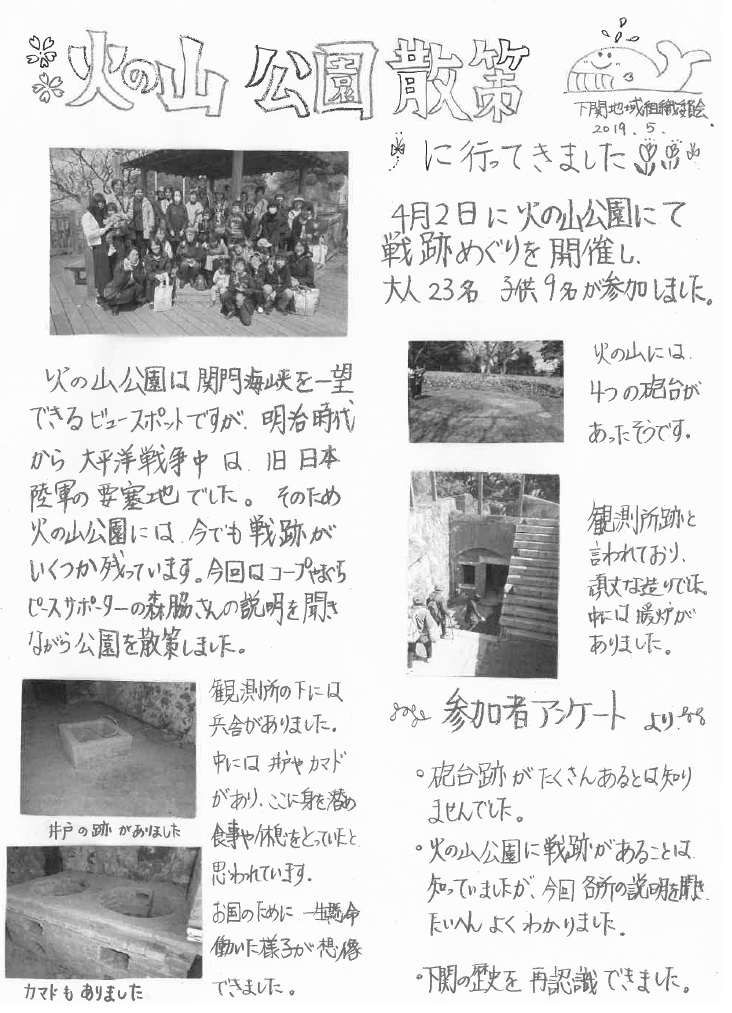 火の山 公園 散策
下関地域組織委員会
2019.5.
に行ってきました
4月2日に火の山公園にて
戦跡めぐりを開催し、
大人23名 子供9名が参加しました。
火の山公園は関門海峡を一望
できるビュースポットですが、明治時代
から大平洋戦争中は、旧日本
陸軍の要塞地でした。そのため
火の山公園には、今でも戦跡が
いくつか残っています。今回はコープやまぐち
ピースサポーターの森脇さんの説明を聞き
ながら公園を散策しました。
火の山には、
4つの砲台が
あったそうです。
観測所跡と
言われており、
頑丈な造りでした。
中には暖炉が
ありました。
観測所の下には
兵舎がありました。
中には井戸やカマド
があり、ここに身を潜め
食事や休息をとっていたと
思われています。
お国のために一生懸命
働いた様子が想像
できました。
井戸の跡がありました
カマドもありました
参加者アンケートより
・砲台跡がたくさんあるとは知り
ませんでした。
・火の山公園に戦跡があることは
知っていましたが、今回各所の説明を聞き
たいへんよくわかりました。
・下関の歴史を再認識できました。